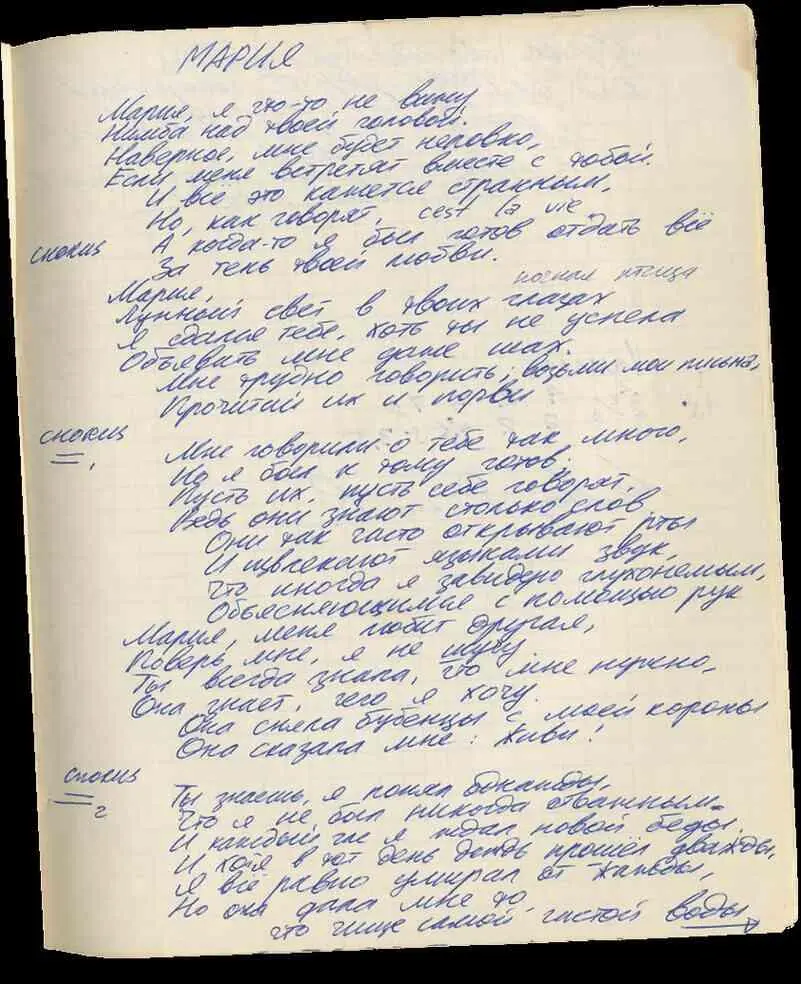 МАРИЯ
Мария, я что-то не вижу
Нимба над твоей головой.
Наверное, мне будет неловко,
Если меня встретят вместе с тобой.
И всё это кажется странным,
Но, как говорят, cest la vie
А когда-то я был готов отдать всё
За тень твоей любви.
Мария,
Лунный свет в твоих глазах
Я сдался тебе, хоть ты не успела
Объявить мне даже шах.
Мне трудно говорить; возьми мои письма,
Прочитай их и порви
Мне говорили о тебе так много,
Но я был к тому готов.
Пусть их, пусть себе говорят,
Ведь они знают столько слов
Они так часто открывают рты
И извлекают языками звук,
Что иногда я завидую глухонемым,
Объясняющимся с помощью рук
Мария, меня любит другая,
Поверь мне, я не шучу
Ты всегда знала, что мне нужно,
Она знает, чего я хочу.
Она сняла бубенцы с моей короны
Она сказала мне: Живи!
2
Ты знаешь, я понял однажды,
Что я не был никогда отважным
И каждый час я ждал новой беды
И хотя в тот день дождь прошёл дважды,
Я всё равно умирал от жажды,
Но она дала мне то,
что чище самой чистой воды